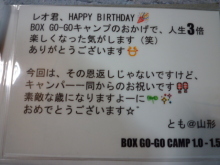 レオ君、HAPPY BIRTHDAY🎉
BOX GO-GOキャンプのおかげで、人生3倍
楽しくなった気がします（笑）
ありがとうございます💎
今回は、その恩返しじゃないですけど、
キャンパー一同からのお祝いです🎁
素敵な歳になりますよーに🎀✨
おめでとうございます☆
とも@山形
BOX GO-GO CAMP 1.0 - 1.5